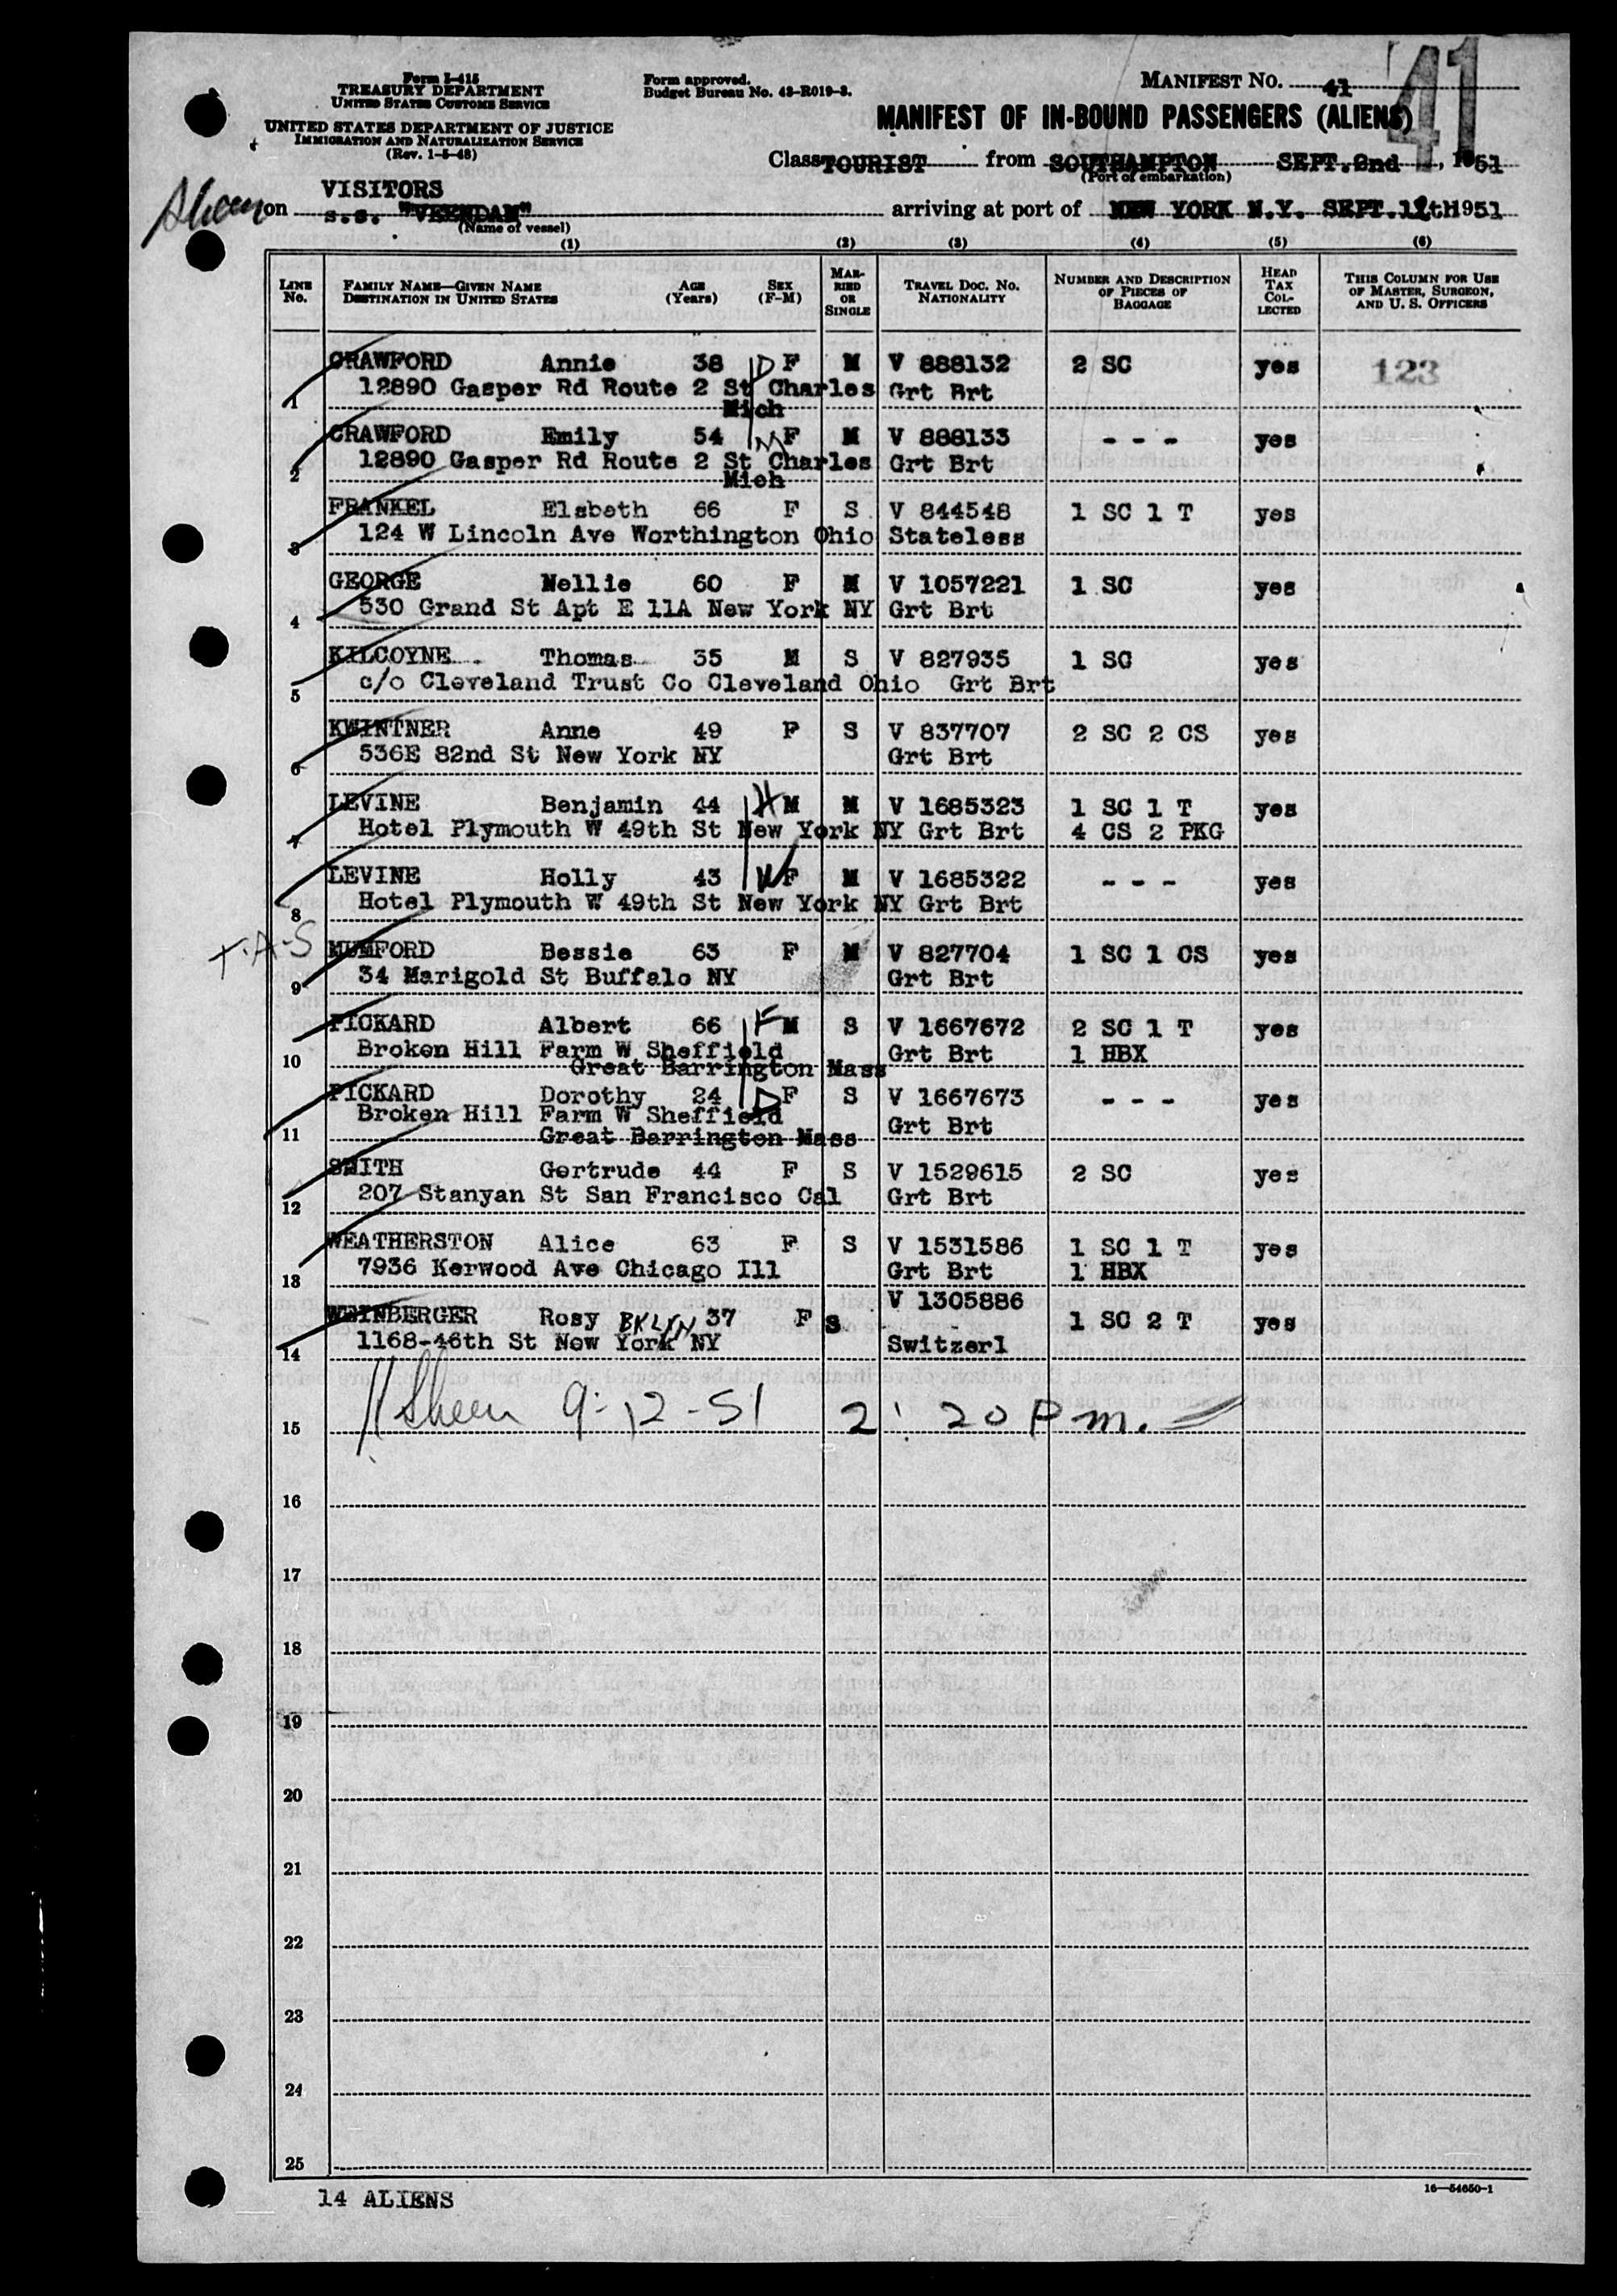 Form I-415
TREASURY DEPARTMENT
UNITED STATES CUSTOMS SERVICE
UNITED STATES DEPARTMENT OF JUSTICE
IMMIGRATION AND NATURALIZATION SERVICE
(Rev. 1-5-48)
Form approved.
Budget Bureau No. 43-R019-3.
MANIFEST NO. 41
41
MANIFEST OF IN-BOUND PASSENGERS (ALIENS)
Class TOURIST from SOUTHAMPTON SEPT.2nd, 1951
(Port of embarkation)
VISITORS
Sheen on s.s. "VEENDAM" arriving at port of NEW YORK N.Y. SEPT.12th 1951
(Name of vessel)
(1) (2) (3) (4) (5) (6)
LINE No. FAMILY NAME—GIVEN NAME DESTINATION IN UNITED STATES AGE (Years) SEX (F-M) MARRIED OR SINGLE TRAVEL DOC. NO. NATIONALITY NUMBER AND DESCRIPTION OF PIECES OF BAGGAGE HEAD TAX COLLECTED THIS COLUMN FOR USE OF MASTER, SURGEON, AND U. S. OFFICERS
CRAWFORD Annie 38 D F M V 888132 2 SC yes 123
1 12890 Gasper Rd Route 2 St Charles Grt Brt
Mich
CRAWFORD Emily 54 M F M V 888133 - - - yes
2 12890 Gasper Rd Route 2 St Charles Grt Brt
Mich
FRANKEL Elsbeth 66 F S V 844548 1 SC 1 T yes
3 124 W Lincoln Ave Worthington Ohio Stateless
GEORGE Nellie 60 F M V 1057221 1 SC yes
4 530 Grand St Apt E 11A New York NY Grt Brt
KILCOYNE Thomas 35 M S V 827935 1 SC yes
5 c/o Cleveland Trust Co Cleveland Ohio Grt Brt
KWINTNER Anne 49 F S V 837707 2 SC 2 CS yes
6 536E 82nd St New York NY Grt Brt
LEVINE Benjamin 44 H M M V 1685323 1 SC 1 T yes
7 Hotel Plymouth W 49th St New York NY Grt Brt 4 CS 2 PKG
LEVINE Holly 43 W F M V 1685322 - - - yes
8 Hotel Plymouth W 49th St New York NY Grt Brt
T-A-S MUMFORD Bessie 63 F M V 827704 1 SC 1 CS yes
9 34 Marigold St Buffalo NY Grt Brt
PICKARD Albert 66 F M S V 1667672 2 SC 1 T yes
10 Broken Hill Farm W Sheffield Grt Brt 1 HBX
Great Barrington Mass
PICKARD Dorothy 24 D F S V 1667673 - - - yes
Broken Hill Farm W Sheffield Grt Brt
11 Great Barrington Mass
SMITH Gertrude 44 F S V 1529615 2 SC yes
12 207 Stanyan St San Francisco Cal Grt Brt
WEATHERSTON Alice 63 F S V 1531586 1 SC 1 T yes
13 7936 Kerwood Ave Chicago Ill Grt Brt 1 HBX
WEINBERGER Rosy BKLYN 37 F S V 1305886 1 SC 2 T yes
14 1168-46th St New York NY Switzerl
15 Sheen 9-12-51 2:20 Pm.
16
17
18
19
20
21
22
23
24
25
14 ALIENS
16—54650-1